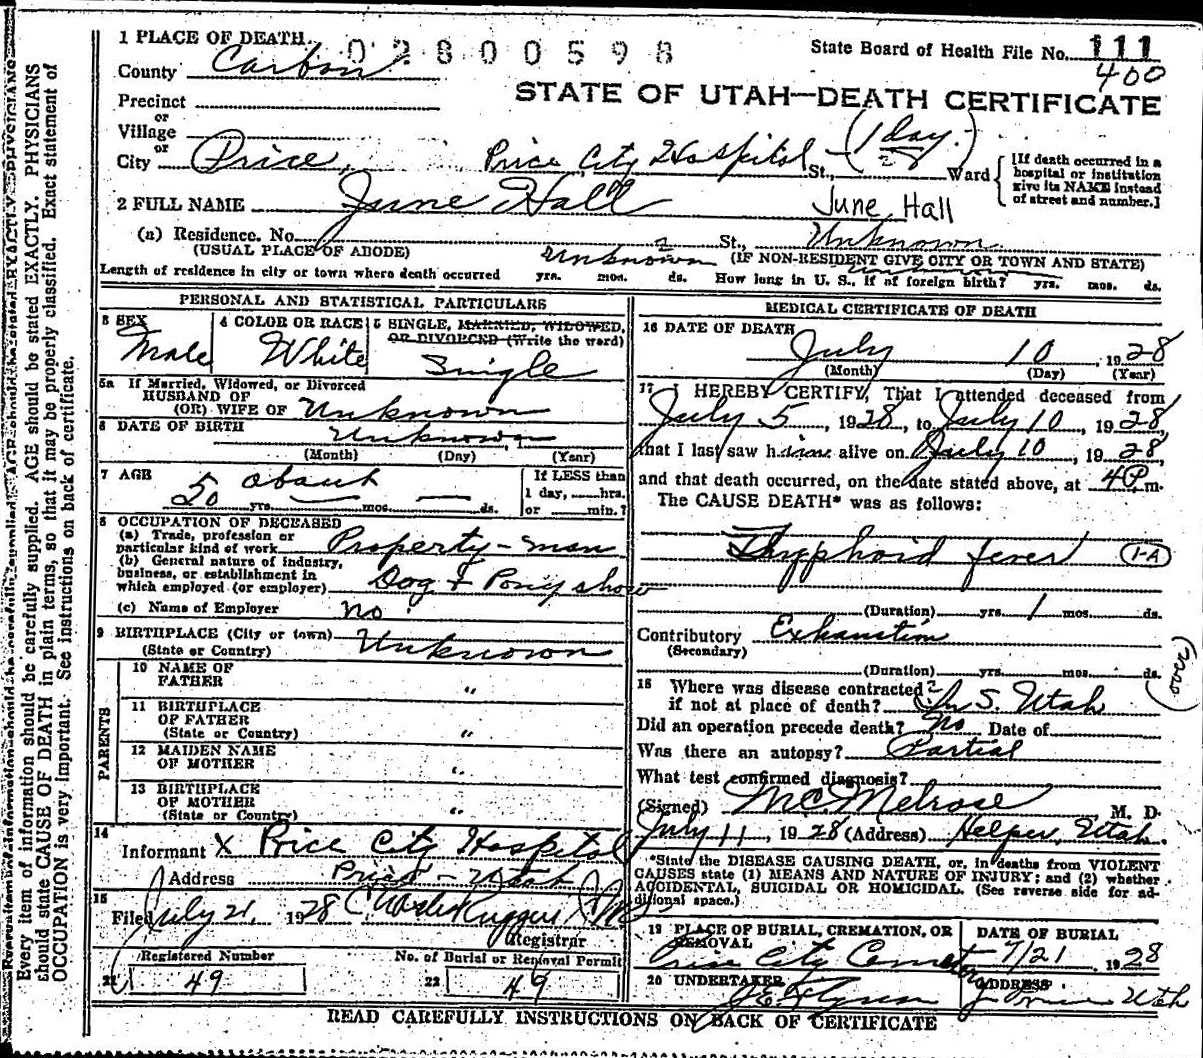 1 PLACE OF DEATH 02800598 State Board of Health File No. 111
County Carbon 400
STATE OF UTAH—DEATH CERTIFICATE
Precinct
or
Village
or
City Price, Price City Hospital St., (1 day.) Ward [If death occurred in a hospital or institution give its NAME instead of street and number.]
2 FULL NAME June Hall June Hall
(a) Residence. No. St., Unknown
(USUAL PLACE OF ABODE) Unknown (IF NON-RESIDENT GIVE CITY OR TOWN AND STATE)
Length of residence in city or town where death occurred yrs. mos. ds. How long in U. S., if of foreign birth? Unknown yrs. mos. ds.
PERSONAL AND STATISTICAL PARTICULARS
3 SEX 4 COLOR OR RACE 5 SINGLE, MARRIED, WIDOWED,
OR DIVORCED (Write the word)
Male White Single
5a If Married, Widowed, or Divorced
HUSBAND OF
(OR) WIFE OF Unknown
6 DATE OF BIRTH Unknown
(Month) (Day) (Year)
7 AGE about If LESS than
50 yrs. mos. ds. 1 day, hrs.
or min.?
8 OCCUPATION OF DECEASED
(a) Trade, profession or
particular kind of work Property-man
(b) General nature of industry,
business, or establishment in
which employed (or employer) Dog & Pony show
(c) Name of Employer no
9 BIRTHPLACE (City or town)
(State or Country) Unknown
PARENTS
10 NAME OF
FATHER "
11 BIRTHPLACE
OF FATHER
(State or Country) "
12 MAIDEN NAME
OF MOTHER "
13 BIRTHPLACE
OF MOTHER
(State or Country) "
14
Informant X Price City Hospital
Address Price - Utah
15
Filed July 21, 1928
Registrar
Registered Number No. of Burial or Removal Permit
21 49 22 49
MEDICAL CERTIFICATE OF DEATH
16 DATE OF DEATH
July 10, 1928
(Month) (Day) (Year)
17 I HEREBY CERTIFY, That I attended deceased from
July 5, 1928, to July 10, 1928,
that I last saw him alive on July 10, 1928,
and that death occurred, on the date stated above, at 4 P m.
The CAUSE DEATH* was as follows:
Thyphoid fever 1-A
(Duration) yrs. 1 mos. ds.
Contributory Exhaustion
(Secondary)
(Duration) yrs. mos. ds.
(over)
18 Where was disease contracted
if not at place of death? In S. Utah
Did an operation precede death? No Date of
Was there an autopsy? Partial
What test confirmed diagnosis?
(Signed) McMelrose, M. D.
July 11, 1928 (Address) Helper, Utah.
*State the DISEASE CAUSING DEATH, or, in deaths from VIOLENT
CAUSES state (1) MEANS AND NATURE OF INJURY; and (2) whether
ACCIDENTAL, SUICIDAL OR HOMICIDAL. (See reverse side for ad-
ditional space.)
19 PLACE OF BURIAL, CREMATION, OR DATE OF BURIAL
REMOVAL
Price City Cemetery 7/21 1928
20 UNDERTAKER ADDRESS
J E Flynn Price Utah
READ CAREFULLY INSTRUCTIONS ON BACK OF CERTIFICATE
Every item of information should be carefully supplied. AGE should be stated EXACTLY. PHYSICIANS
should state CAUSE OF DEATH in plain terms, so that it may be properly classified. Exact statement of
OCCUPATION is very important. See instructions on back of certificate.